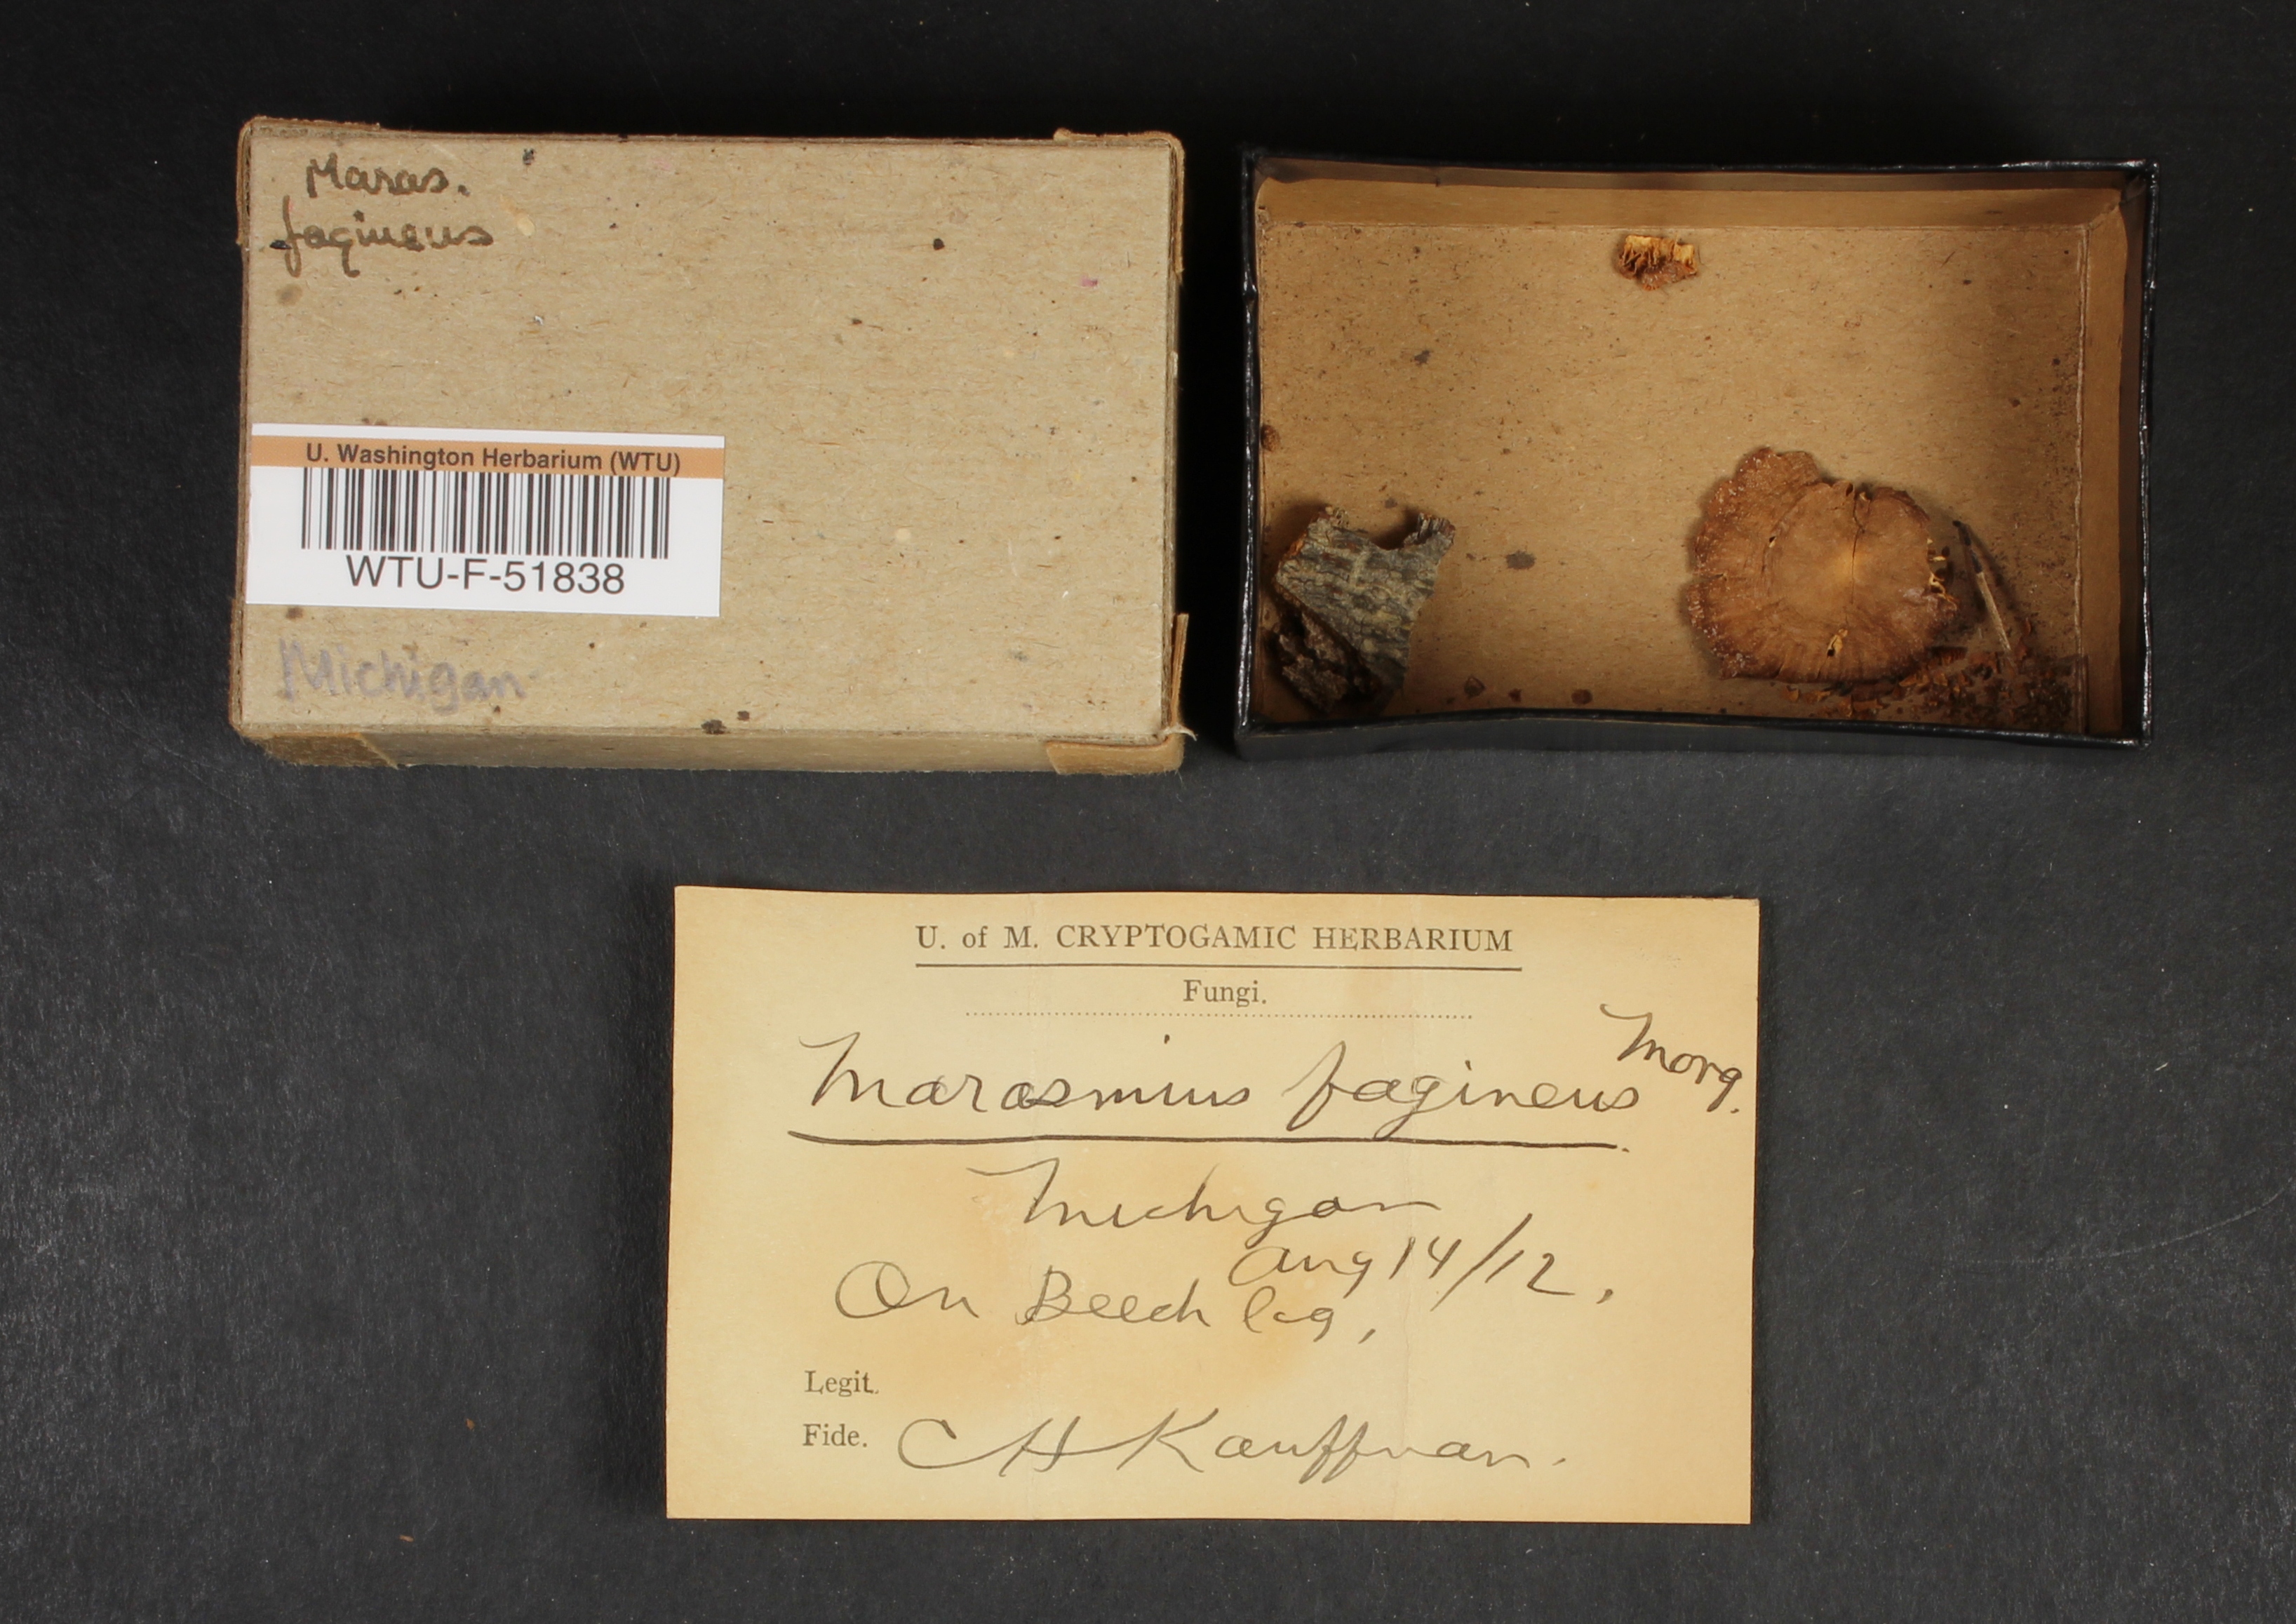 Maras.
fagineus
U. Washington Herbarium (WTU)
WTU-F-51838
Michigan
U. of M. CRYPTOGAMIC HERBARIUM
Fungi.
Marasmius fagineus Morg.
Michigan
Aug 14/12.
On Beech log,
Legit.
Fide. CH Kauffman.